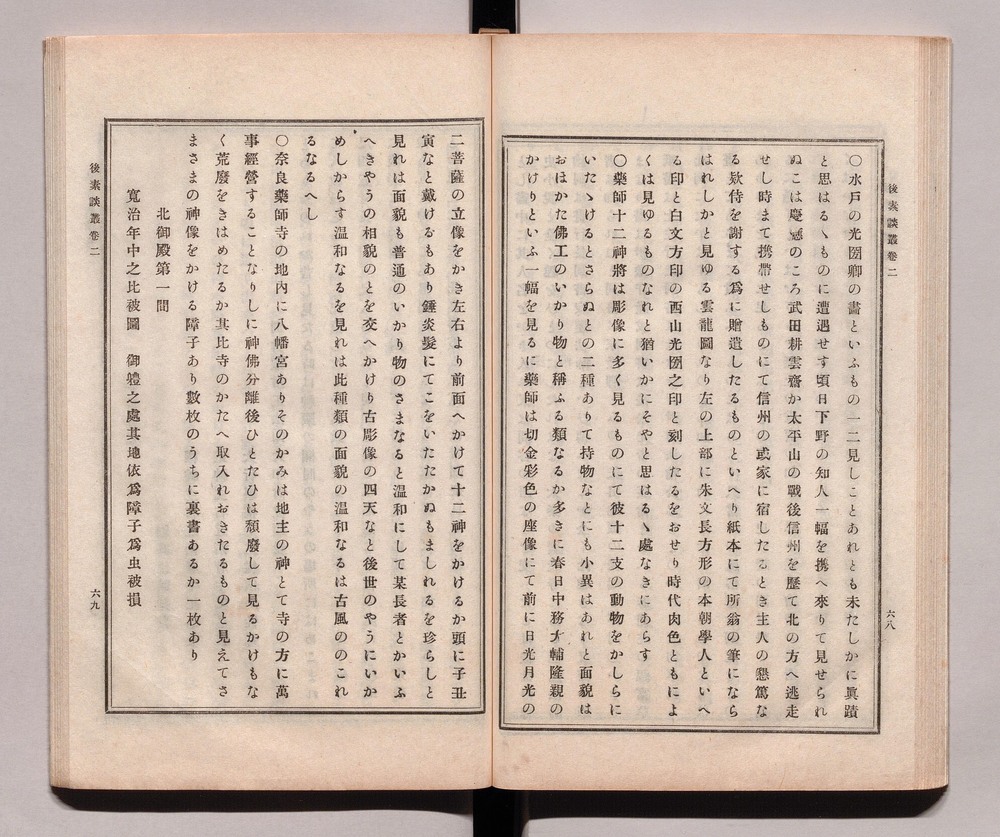 後素談叢卷二
六八
〇水戶の光圀卿の畵といふもの一二見しことあれとも未たしかに眞蹟
と思はるヽものに遭遇せす頃日下野の知人一幅を携へ來りて見せられ
ぬこは慶應のころ武田耕雲齋か太平山の戰後信州を歷て北の方へ逃走
せし時まて携帶せしものにて信州の或家に宿したるとき主人の懇篤な
る欵待を謝する爲に贈遺したるものといへり紙本にて所翁の筆になら
はれしかと見ゆる雲龍圖なり左の上部に朱文長方形の本朝學人といへ
る印と白文方印の西山光圀之印と刻したるをおせり時代肉色ともによ
くは見ゆるものなれと猶いかにそやと思はるヽ處なきにあらす
〇藥師十二神將は彫像に多く見るものにて彼十二支の動物をかしらに
いたヽけるとさらぬとの二種ありて持物なとにも小異はあれと面貌は
おほかた佛工のいかり物と稱ふる類なるか多きに春日中務大輔隆親の
かけりといふ一幅を見るに藥師は切金彩色の座像にて前に日光月光の
二菩薩の立像をかき左右より前面へかけて十二神をかけるか頭に子丑
寅なと戴けるもあり錘炎髮にてこをいたたかぬもましれるを珍らしと
見れは面貌も普通のいかり物のさまなると温和にして某長者とかいふ
へきやうの相貌のとを交へかけり古彫像の四天なと後世のやうにいか
めしからす温和なるを見れは此種類の面貌の温和なるは古風ののこれ
るなるへし
〇奈良藥師寺の地內に八幡宮ありそのかみは地主の神とて寺の方に萬
事經營することなりしに神佛分離後ひとたひは頽廢して見るかけもな
く荒廢をきはめたるか其比寺のかたへ取入れおきたるものと見えてさ
まさまの神像をかける障子あり數枚のうちに裏書あるか一枚あり
北御殿第一間
寬治年中之比被圖　御軆之處其地依爲障子爲虫被損
後素談叢卷二
六九